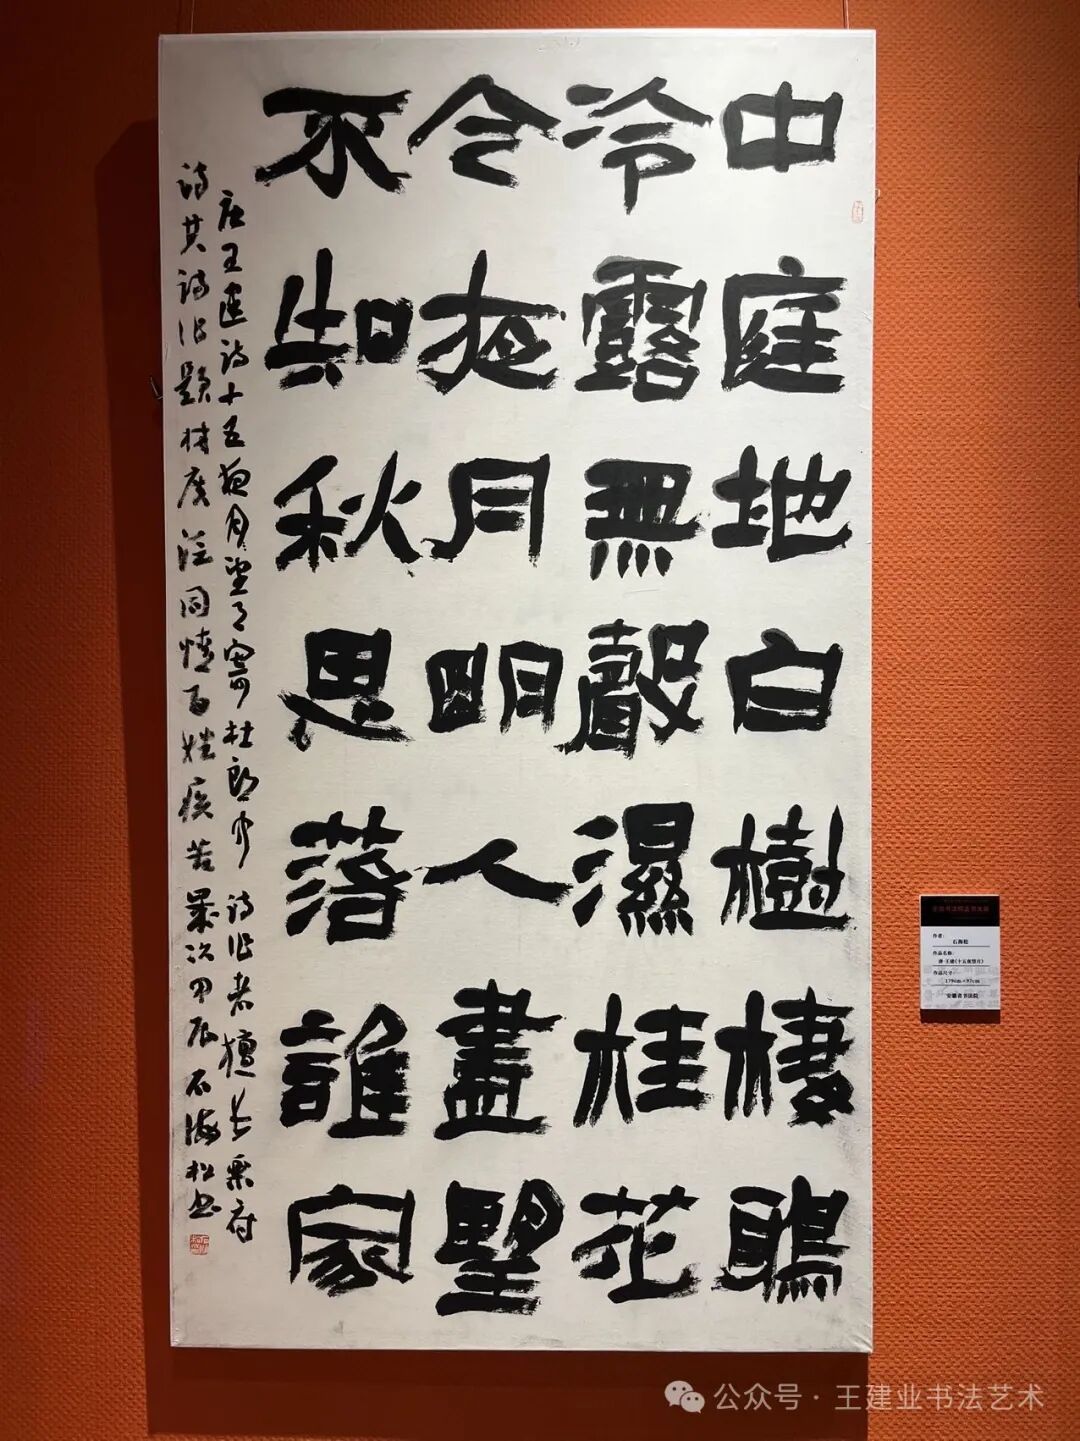 中庭地白樹棲鴉
冷露無聲濕桂花
今夜月明人盡望
不知秋思落誰家
唐王建诗十五夜月望寄杜郎中 诗作者擅长乐府
诗其诗作题材广泛同情百姓疾苦 岁次甲辰石海松书
作者：
石海松
作品名称：
唐·王建《十五夜望月》
作品尺寸：
179cm×97cm
安徽省书法院
公众号·王建业书法艺术